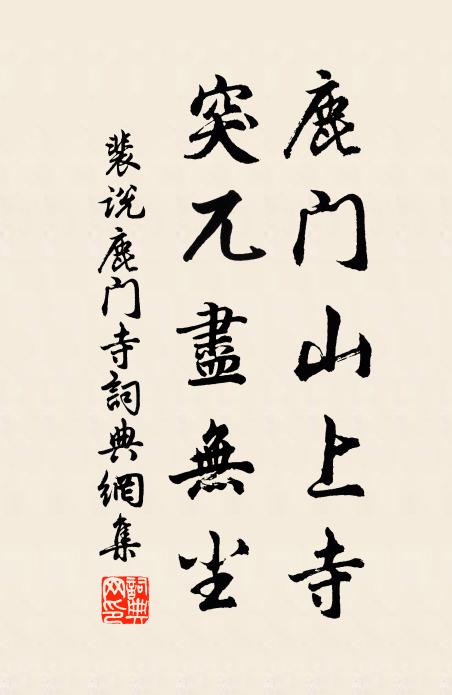 鹿门山上寺
突兀盡無尘
裴说鹿门寺詞典網集
詞典
网印